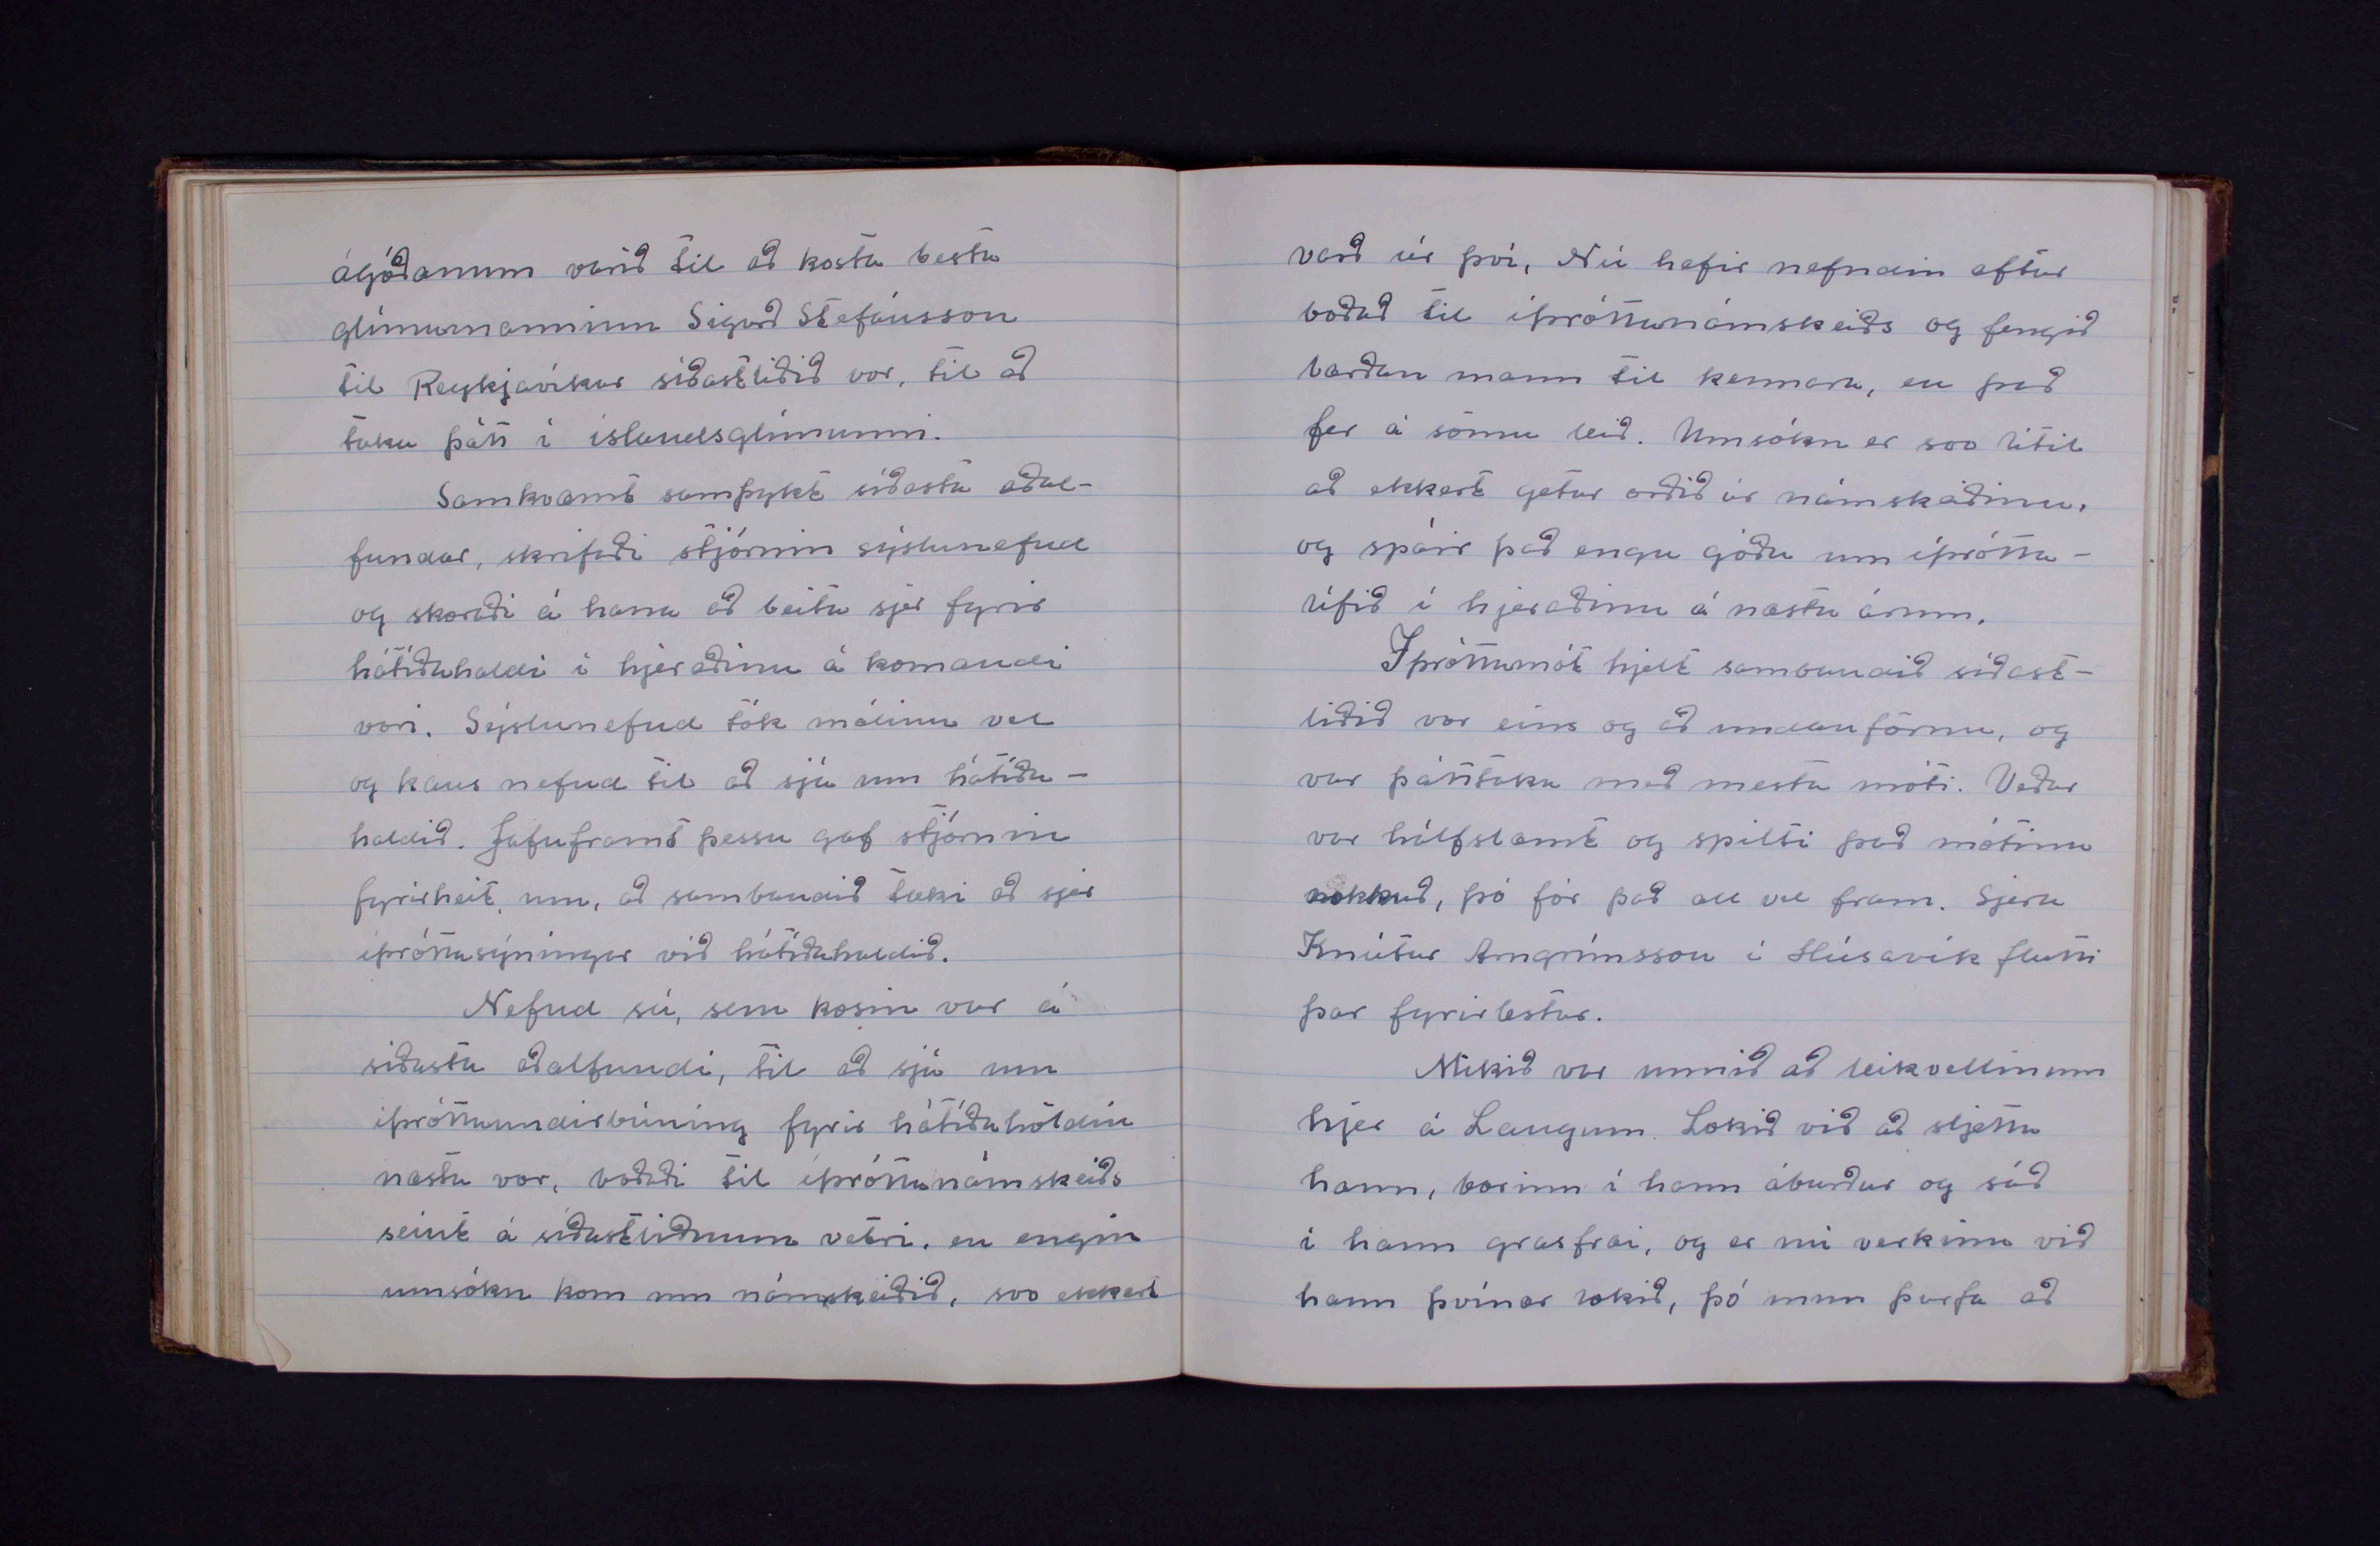 ágóðanum varið til að kosta besta
glímumanninn Sigurð Stefánsson
til Reykjavíkur síðastliðið vor, til að
taka þátt í íslandsglímunni.
Samkvæmt samþykt síðasta aðal-
fundar, skrifaði stjórnin sýslunefnd
og skoraði á hana að beita sjer fyrir
hátíðahaldi í hjeraðinu á komandi
vori. Sýslunefnd tók málinu vel
og kaus nefnd til að sjá um hátíða-
haldið. Jafnframt þessu gaf stjórnin
fyrirheit um, að sambandið tæki að sjer
íþróttasýningar við hátíðahaldið.
Nefnd sú, sem kosin var á
síðasta aðalfundi, til að sjá um
íþróttaundirbúning fyrir hátíðahöldin
næsta vor, boðaði til íþróttanámskeiðs
seint á síðastliðnum vetri, en engin
umsókn kom um námskeiðið, svo ekkert
varð úr því. Nú hefir nefndin aftur
boðað til íþróttanámskeiðs og fengið
færðan mann til kennara, en það
fer á sömu leið. Umsókn er svo lítil
að ekkert getur orðið úr námskeiðinu,
og spáir það engu góðu um íþrótta-
lífið í hjeraðinu á næstu árum.
Íþróttamót hjelt sambandið síðast-
liðið vor eins og að undanförnu, og
var þátttaka með mesta móti. Veður
var hálfslæmt og spilti það mótinu
nokkuð, þó fór það all vel fram. Sjera
Knútur Arngrímsson í Húsavík flutti
þar fyrirlestur.
Mikið var unnið að leikvellinum
hjer á Laugum. Lokið við að sljetta
hann, borinn í hann áburður og sáð
í hann grasfræi, og er nú verkinu við
hann þvínær lokið, þó mun þurfa að